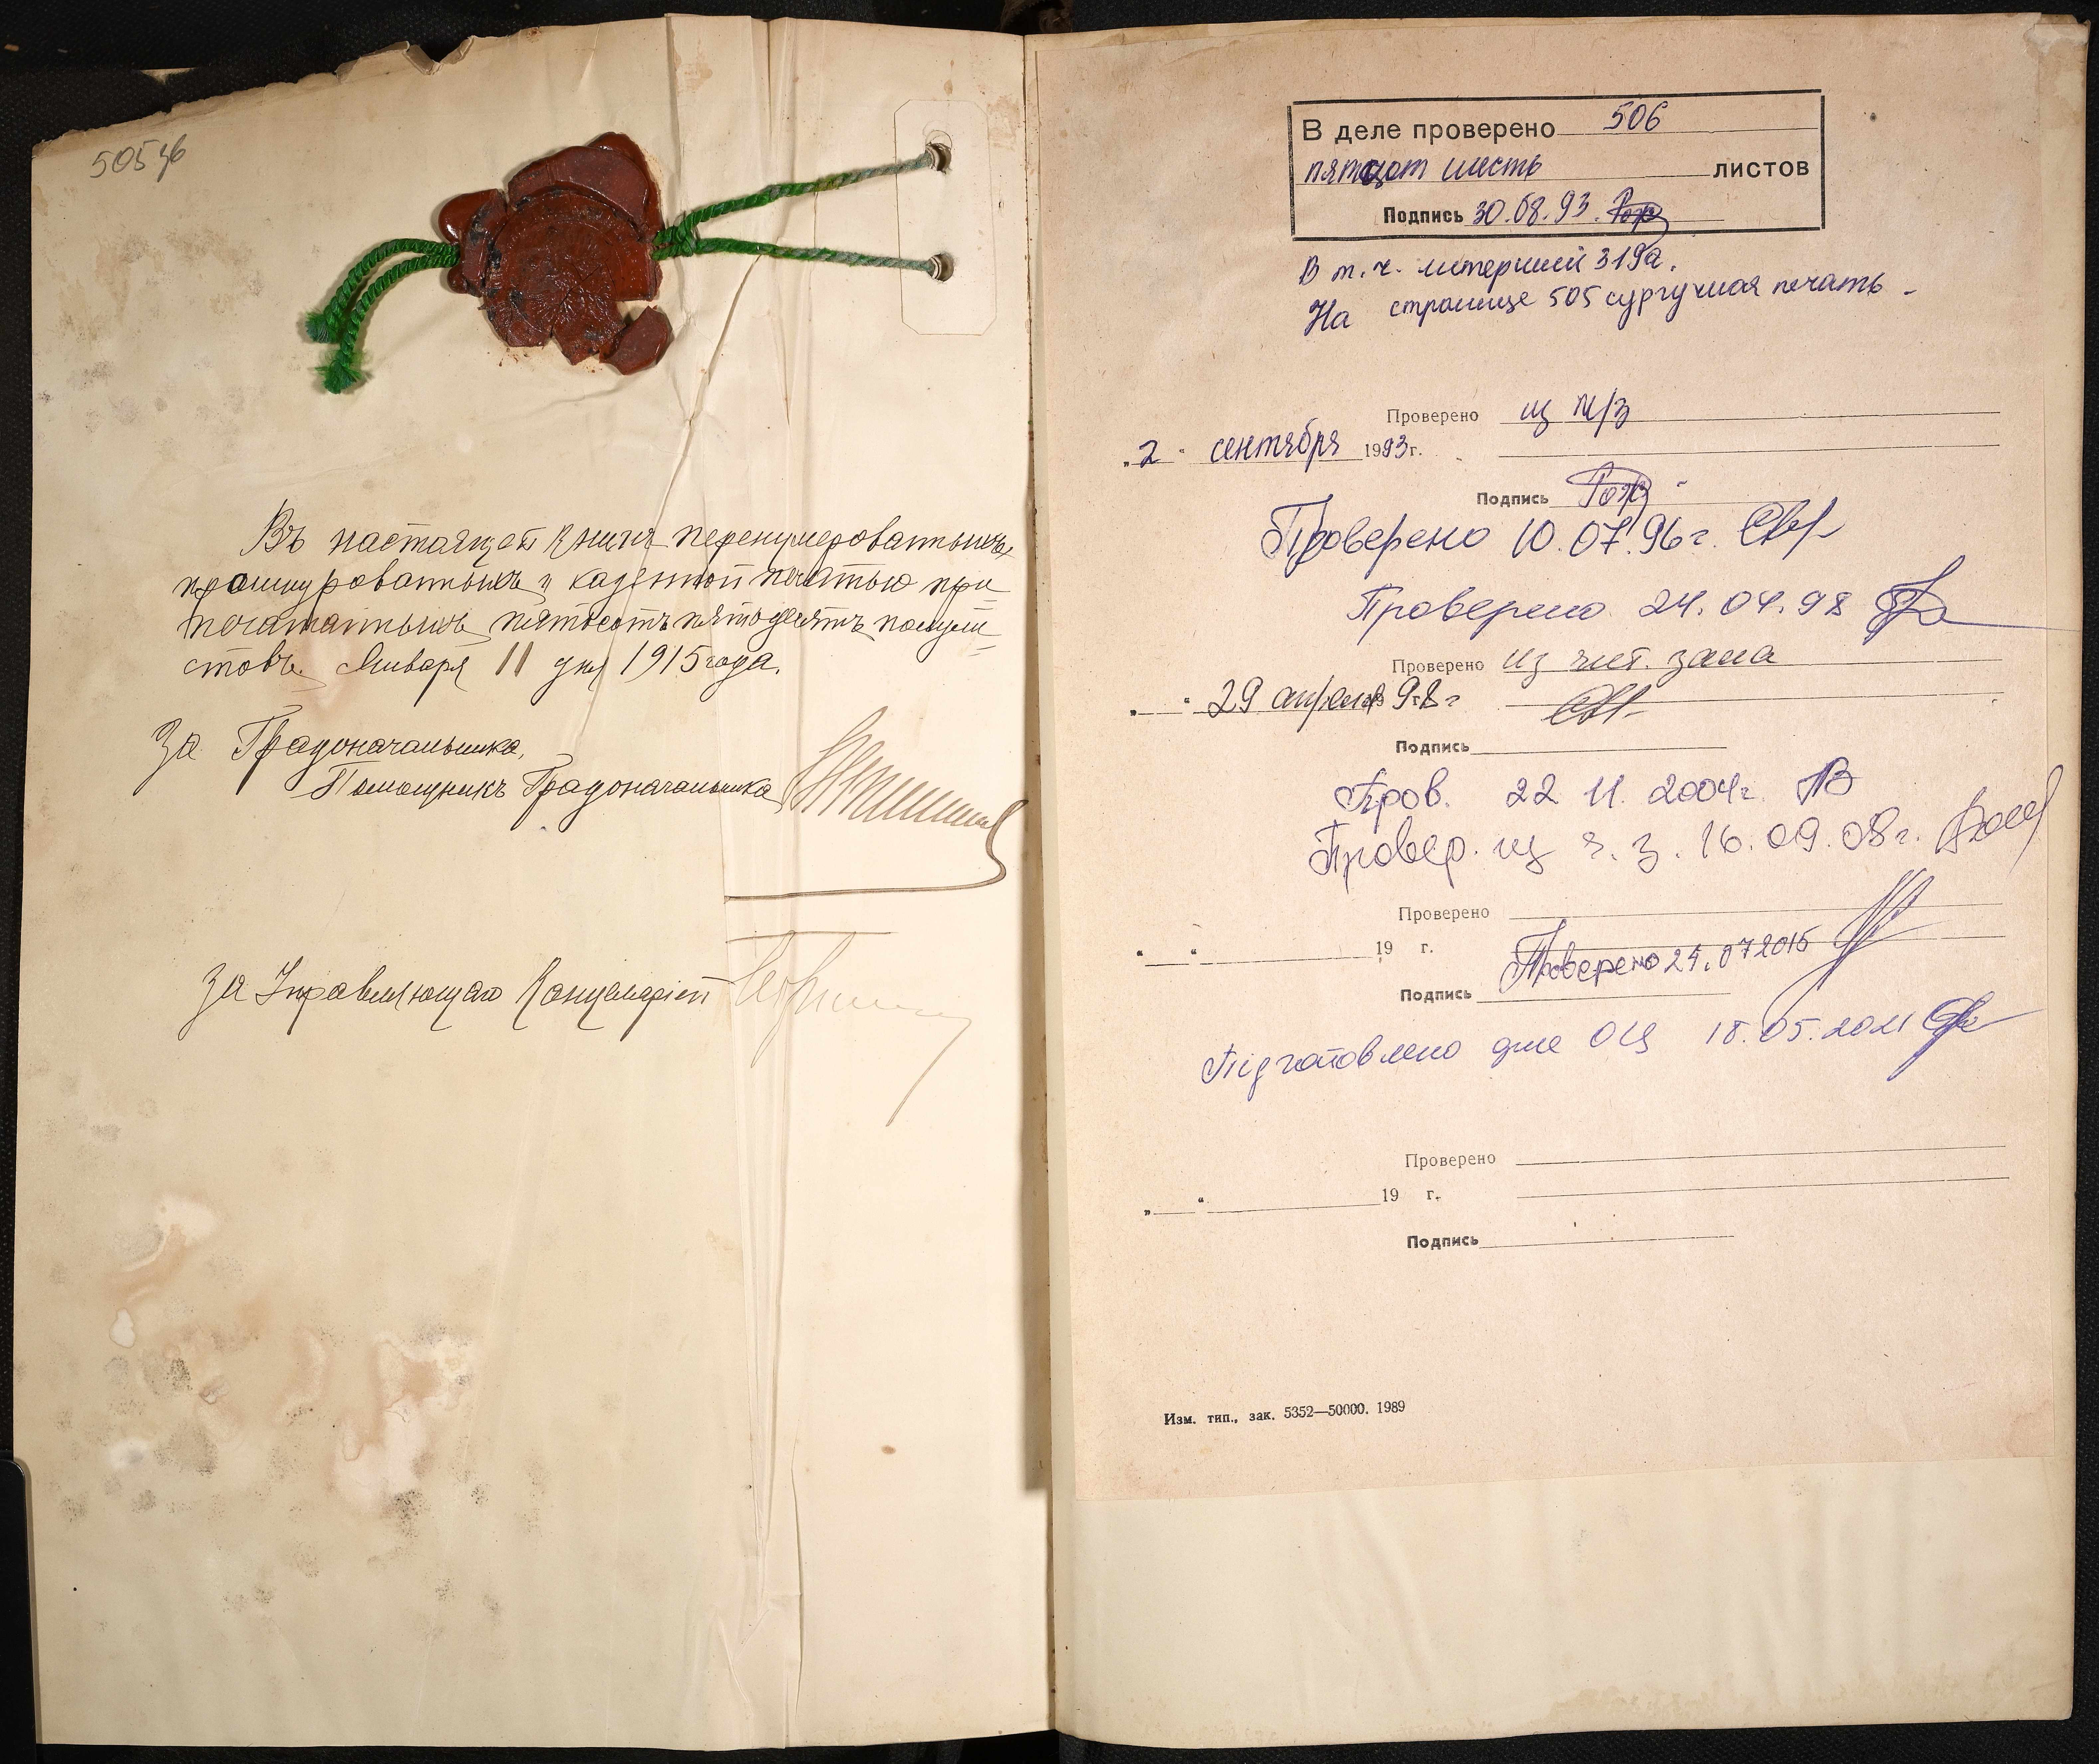 505 зб
Въ настоящей книгѣ перенумерованныхъ,
прошнурованныхъ и казенной печатью при
печатанныхъ пятьсотъ пятьдесятъ полули
стовъ. Января 11 дня 1915 года.
За Градоначальника,
Помощникъ Градоначальника
За Управляющаго Канцеляріей
В деле проверено 506
пятьсот шесть листов
Подпись 30.08.93.
В т. ч. литерный 319а.
На странице 505 сургучная печать -
Проверено из
„2" сентября 1993 г.
Подпись
Проверено 10.07.96 г.
Проверено 24.04.98
Проверено из чит. зала
„ " 29 апреля 98 г
Подпись
Пров. 22 11. 2004 г.
Провер. из ч. з. 16.09.08 г.
Проверено
„ " 19 г.
Проверено 24.07 2015
Подпись
Підготовлено для ОЦ 18.05.2021
Проверено
„ " 19 г.
Подпись
Изм. тип., зак. 5352—50000. 1989